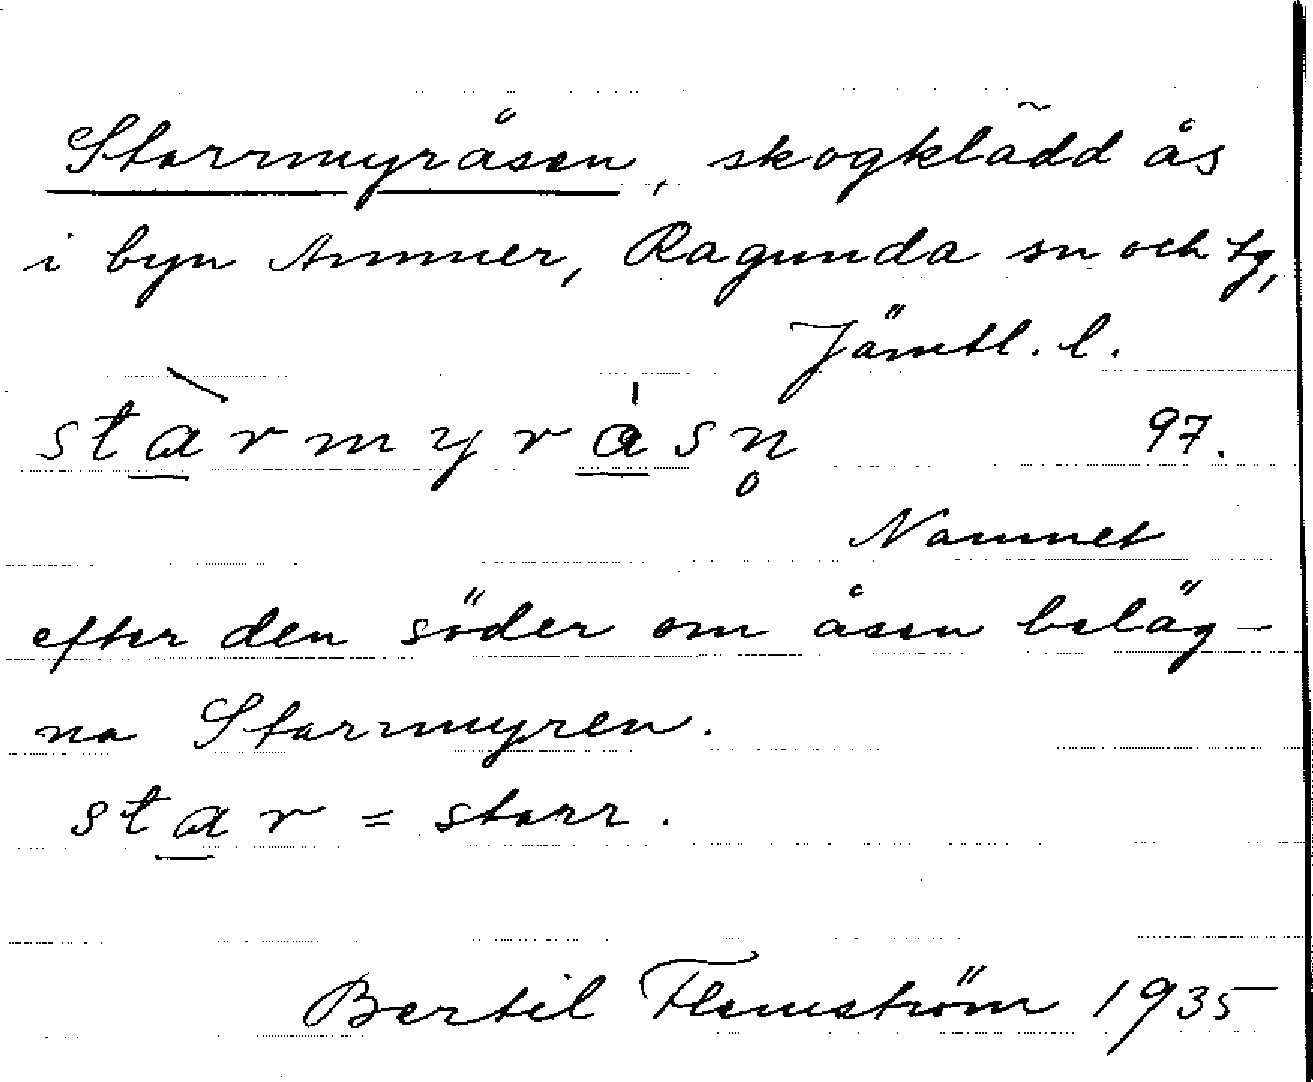 Starrmyråsen, skogklädd ås
i byn Ammer, Ragunda sn och tg,
Jämtl. l.
stàrmyrásn̥ 97.
Namnet
efter den söder om åsen beläg-
na Starmyren.
star = starr.
Bertil Flemström 1935